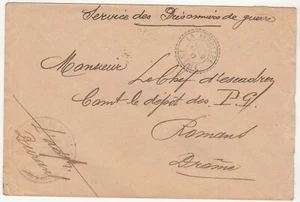 Service des Prisonniers de guerre
Monsieur
Le Chef d'escadron
Comt le dépôt des P. G.
Romans
Drôme